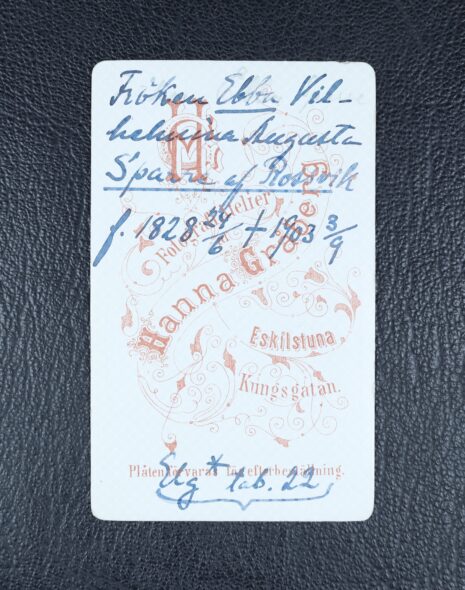 Fröken Ebba Vil-
helmina Augusta
Sparre af Rossvik
f. 1828 29/6 † 1903 3/9
HG
Fotografiatelier
Hanna Graberg
Eskilstuna
Kungsgatan.
Plåten förvaras för efterbeställning.
Elg * tab. 22